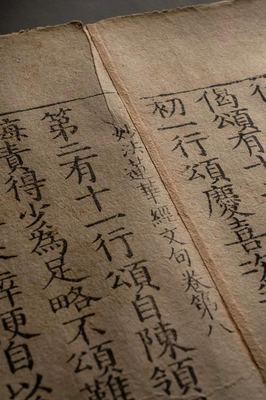 偈頌有十
初一行頌慶喜次
妙法蓮華經文句卷第八
第二有十一行頌自陳領
悔責得少為足略不頌難
辛更自